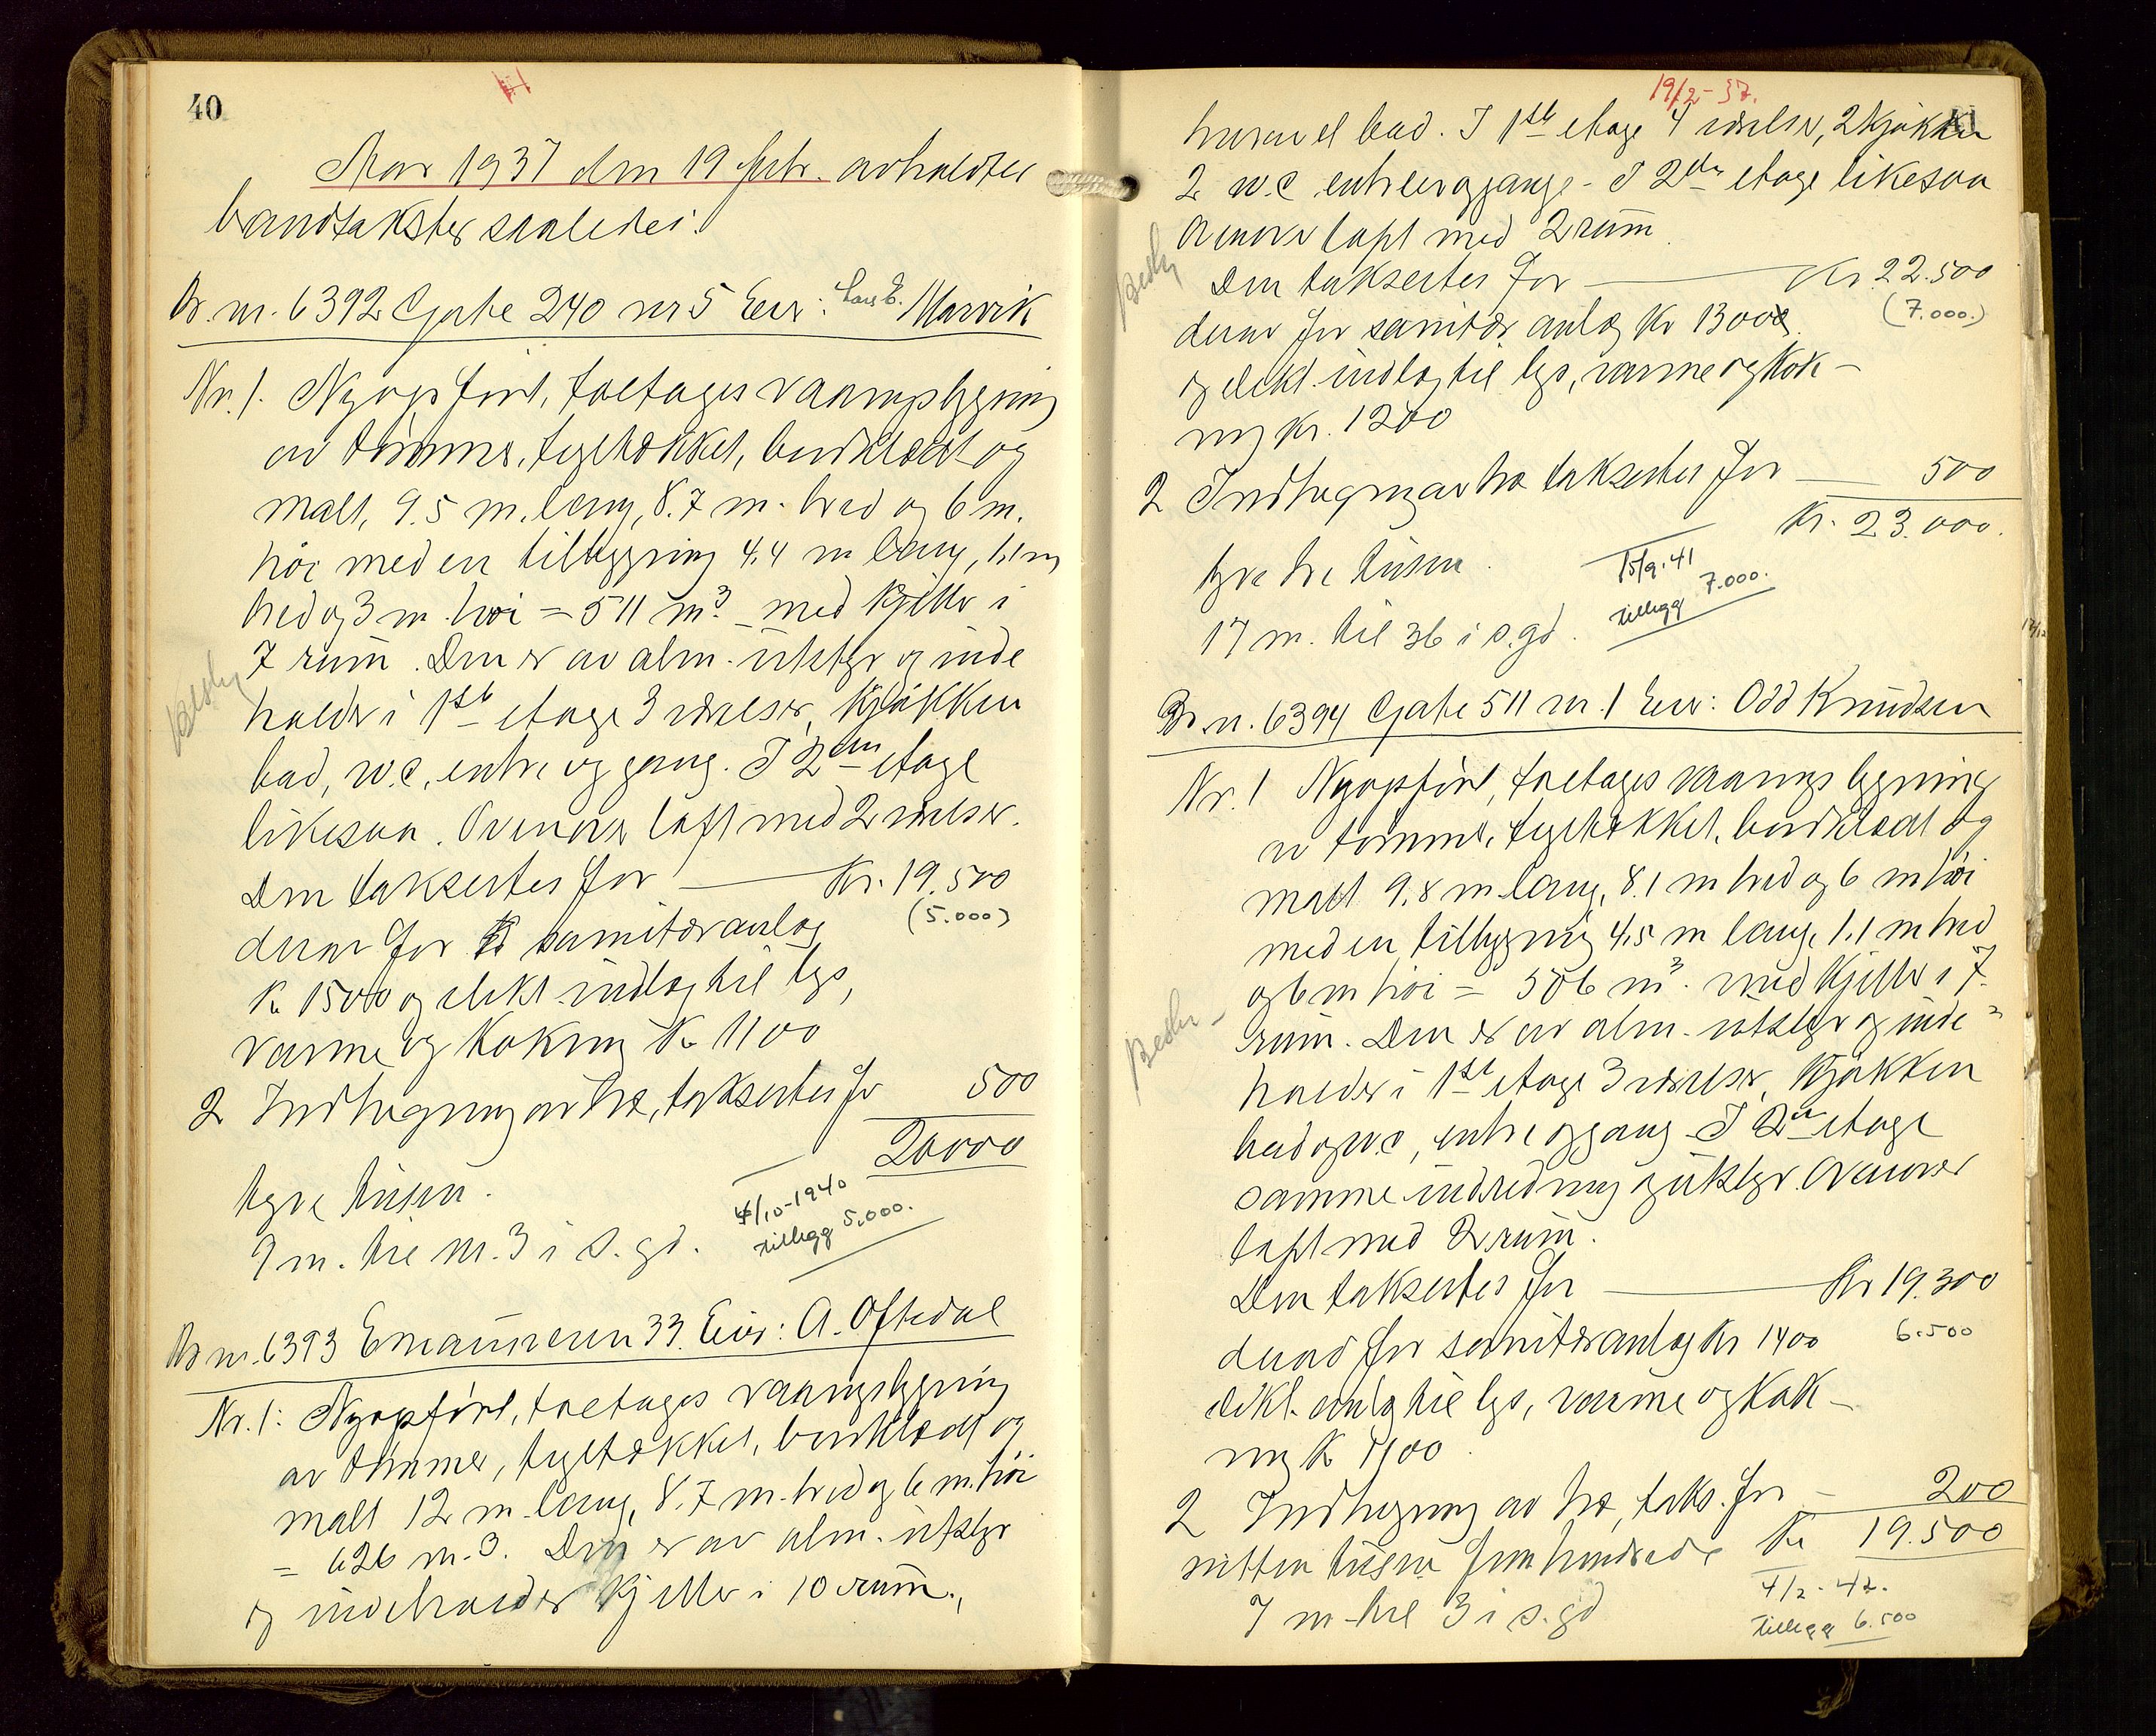 40
Aar 1937 den 19 febr. avholdtes
brandtakster saaledes:
Br. nr. 6392 Gate 240 nr 5 Eier: Marvik
Nr. 1. Nyopført, toetages vaaningsbygning
av tømmer, tegltækket, bordklædt og
malt, 9.5 m. lang, 8.7 m. bred og 6 m.
høi med en tilbygning 4.4 m lang, 1.1 m
bred og 3 m. høi = 511 m³ – med kjeller i
7 rum. Den er av alm. utstyr og inde
holder i 1ste etage 3 værelser, kjøkken
bad, w.c, entre og gang. I 2den etage
likesaa. Ovenover loft med 2 værelser.
Den taksertes for — Kr. 19.500
(5.000)
derav for sanitæranlæg
Kr 1500 og elekt. indlæg til lys,
varme og kokning Kr 1100
2 Indhegning av træ, taksertes for 500
20000
tyve tusen.
9 m. til nr. 3 i s. gd.
4/10-1940
tillegg 5.000.
Br nr. 6393 33. Eier: A. Oftedal
Nr. 1: Nyopført, toetages vaaningsbygning
av tømmer, tegltækket, bordklædt og
malt 12 m. lang, 8.7 m. bred og 6 m. høi
= 626 m.3. Den er av alm. utstyr
og indeholder kjeller i 10 rum.,
19/2-37.
41
hvorav et bad. I 1ste etage 4 værelser, 2 kjøkken
2 w.c entreer og gange. I 2den etage likesaa
Ovenover loft med 2 rum
Den taksertes for — Kr 22.500
(7.000.)
derav for sanitær anlæg Kr 1300
og elekt. indlæg til lys, varme og kok-
ning Kr. 1200
2 Indhegning av træ taksertes for — 500
Kr. 23.000.
tyve tre tusen.
17 m. til 36 i s. gd.
15/9.41
tillegg 7.000.
Br. nr. 6394 Gate 511 nr. 1 Eier: Odd Knudsen
Nr. 1 Nyopført, toetages vaanings bygning
av tømmer, tegltækket, bordklædt og
malt 9.8 m. lang, 8.1 m bred og 6 m høi
med en tilbygning 4.5 m lang, 1.1 m bred
og 6 m høi = 506 m³. med kjeller i 7
rum. Den er av alm. utstyr og inde=
holder i 1ste etage 3 værelser, kjøkken
bad og w.c, entre og gang. I 2den etage
samme indredning og utstyr. Ovenover
loft med 2 rum.
Den taksertes for — Kr 19.300
6.500
derav for sanitæranlæg Kr 1400
elekt. anlæg til lys, varme og kok-
ning Kr 1100.
2 Indhegning av træ, taks. for – 200
nitten tusen fem hundrede Kr 19.500
7 m. til 3 i s. gd
4/2-42.
tillegg 6.500